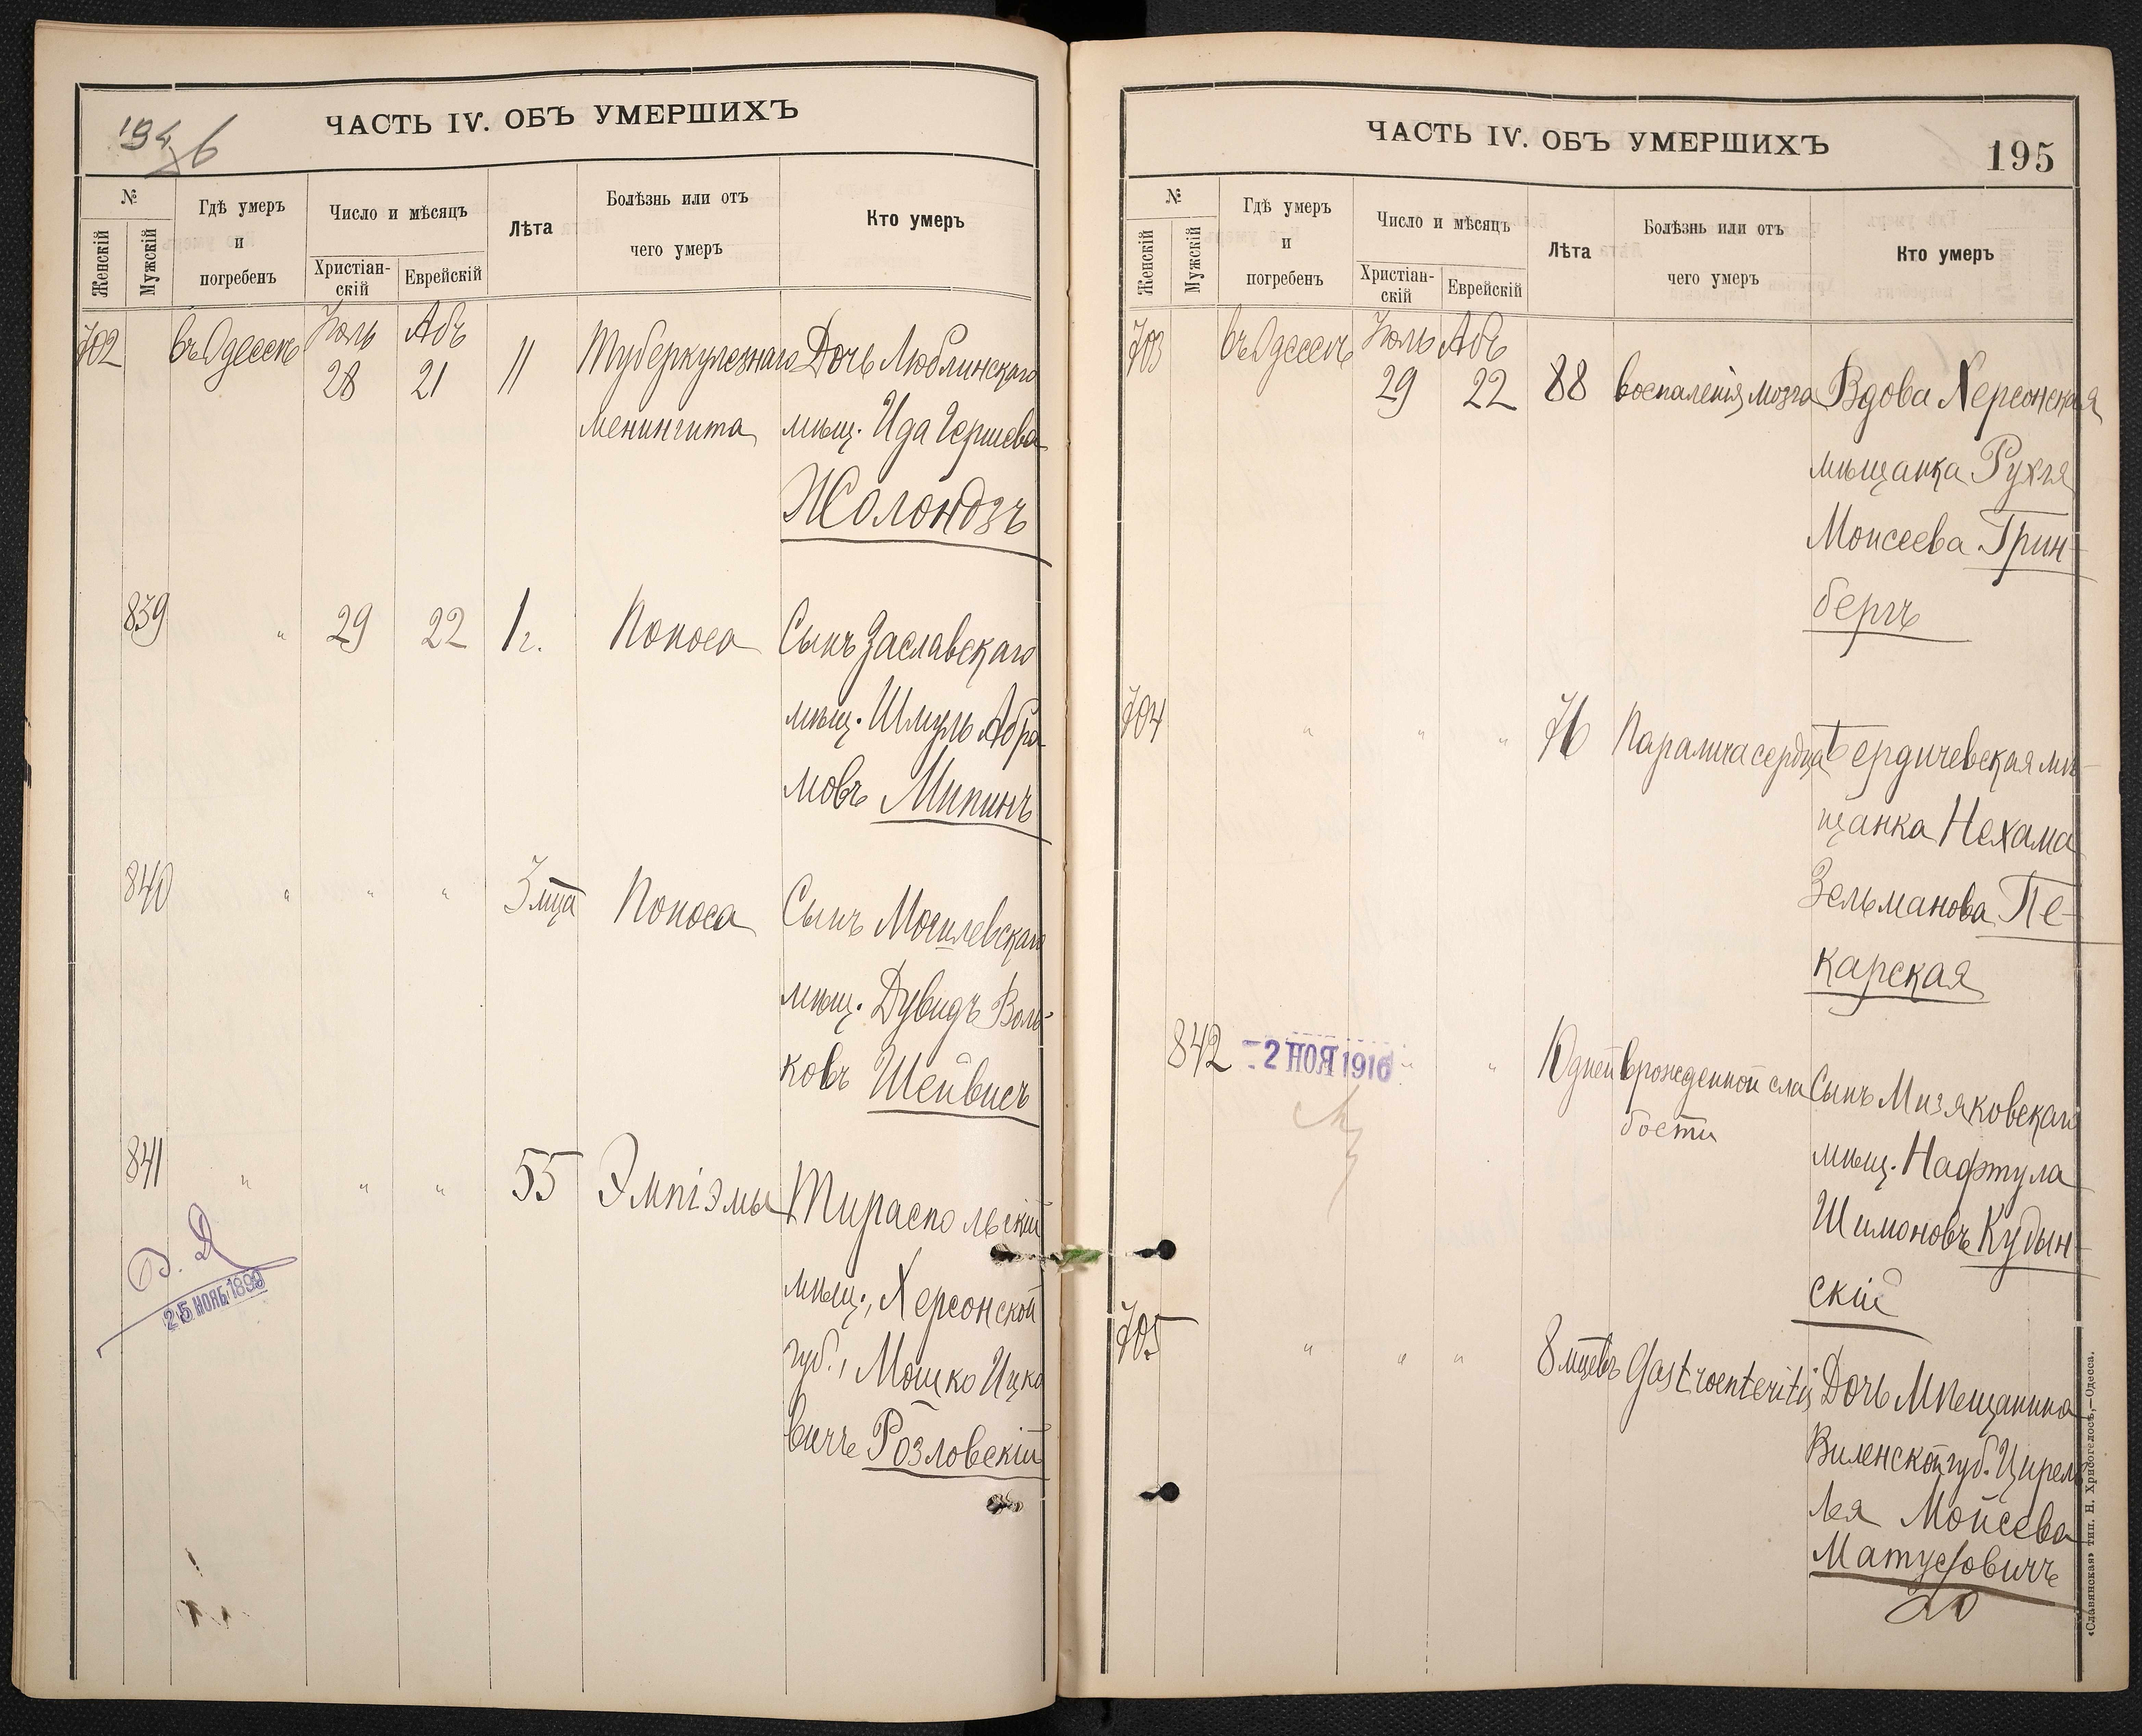 194
6
ЧАСТЬ IV. ОБЪ УМЕРШИХЪ
№
Женскій
Мужскій
Гдѣ умеръ
и
погребенъ
Число и мѣсяцъ
Христіан-
скій
Еврейскій
Лѣта
Болѣзнь или отъ
чего умеръ
Кто умеръ
702 въ Одессѣ Іюль 28 Абъ 21 11 Туберкулезнаго Дочь Люблинскаго
менингита мѣщ. Ида Гершева
Жолондзъ
839 " 29 22 1 г. Поноса Сынъ Заславскаго
мѣщ. Шмуль Абра-
мовъ Мипинъ
840 " " " 3 мца Поноса Сынъ Могилевскаго
мѣщ. Дувидъ Воль-
ковъ Шейвисъ
841 " " " 55 Эмпіэмы Тираспольскій
мѣщ., Херсонской
губ., Мошко Ицко
вичъ Розловскій
25 НОЯБ 1899
ЧАСТЬ IV. ОБЪ УМЕРШИХЪ
195
№
Женскій
Мужскій
Гдѣ умеръ
и
погребенъ
Число и мѣсяцъ
Христіан-
скій
Еврейскій
Лѣта
Болѣзнь или отъ
чего умеръ
Кто умеръ
703 въ Одессѣ Іюль 29 Абъ 22 88 воспаленія мозга Вдова Херсонская
мѣщанка Рухля
Моисеева Грин-
бергъ
704 " " " 76 Паралича сердца Бердичевская мѣ-
щанка Нехама
Зельманова Пе-
карская
842 -2 НОЯ 1916 " " 10 дней врожденной сла Сынъ Мизяковскаго
бости мѣщ. Нафтула
Шимоновъ Кудын-
скій
705 " " " 8 мцевъ Gastroenteritis Дочь Мѣщанина
Виленской губ. Цирель
Лея Мойсеева
Матусовичъ
«Славянская» тип. Н. Хрисогелосъ,—Одесса.